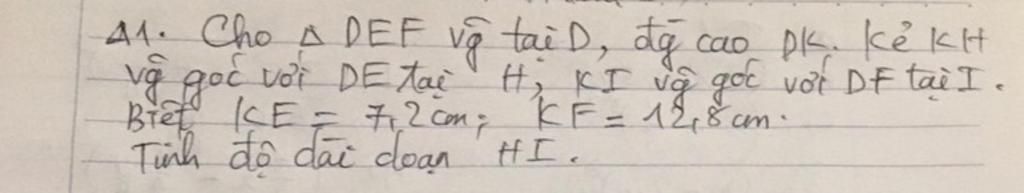 Δ1. Cho Δ DEF vg̃ tại D, đg̃ cao DK. Kẻ KH
vg̃ góc với DE tại H, KI vg̃ góc với DF tại I.
Biết KE = 7,2cm; KF = 12,8cm.
Tính độ dài đoạn HI.